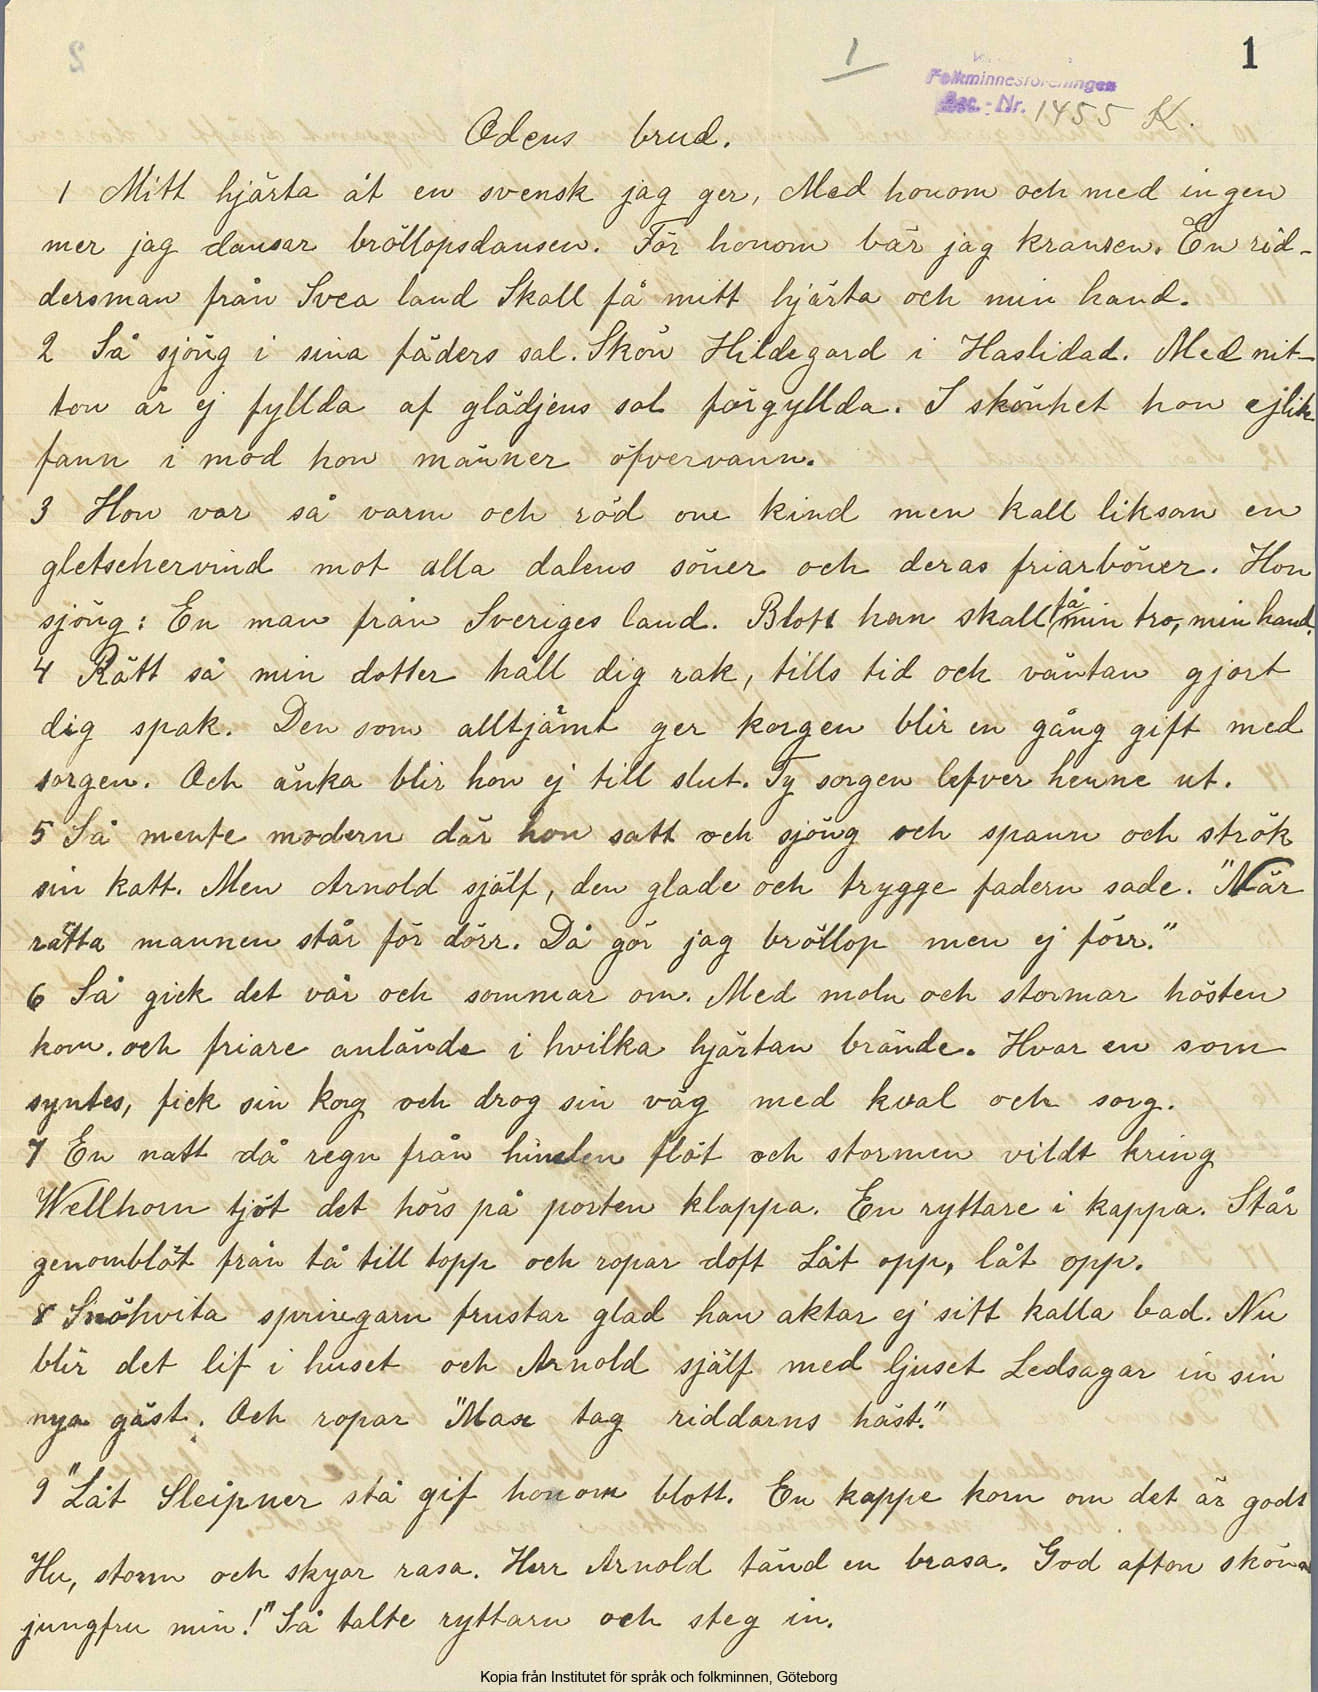 1
1
Folkminnesföreningen
Acc. - Nr. 1455 K.
Odens brud.
1 Mitt hjärta åt en svensk jag ger, Med honom och med ingen
mer jag dansar bröllopsdansen. För honom bär jag kransen. En rid-
dersman från Svea land Skall få mitt hjärta och min hand.
2 Så sjöng i sina fäders sal. Skön Hildegard i Haslidad. Med nit-
ton år ej fyllda af glädjens sol förgyllda. I skönhet hon ej lik
fann i mod hon männer öfvervann.
3 Hon var så varm och röd om kind men kall liksom en
gletschervind mot alla dalens söner och deras friarböner. Hon
sjöng: En man från Sveriges land. Blott han skall få min tro, min hand.
4 Rätt så min dotter håll dig rak, tills tid och väntan gjort
dig spak. Den som alltjämt ger korgen blir en gång gift med
sorgen. Och änka blir hon ej till slut. Ty sorgen lefver henne ut.
5 Så mente modern där hon satt och sjöng och spann och strök
sin katt. Men Arnold själf, den glade och trygge fadern sade. "När
rätta mannen står för dörr. Då gör jag bröllop men ej förr."
6 Så gick det vår och sommar om. Med moln och stormar hösten
kom. och friare anlände i hvilka hjärtan brände. Hvar en som
syntes, fick sin korg och drog sin väg med kval och sorg.
7 En natt då regn från himlen flöt och stormen vildt kring
Wellhorn tjöt det hörs på porten klappa. En ryttare i kappa. Står
genomblöt från tå till topp och ropar doft Låt opp, låt opp.
8 Snöhvita springarn frustar glad han aktar ej sitt kalla bad. Nu
blir det lif i huset och Arnold själf med ljuset Ledsagar in sin
nya gäst. Och ropar "Max tag riddarns häst."
9 "Låt Sleipner stå gif honom blott. En kappe korn om det är godt
Hu, storm och skyar rasa. Herr Arnold tänd en brasa. God afton sköna
jungfru min!" Så talte ryttarn och steg in.
Kopia från Institutet för språk och folkminnen, Göteborg